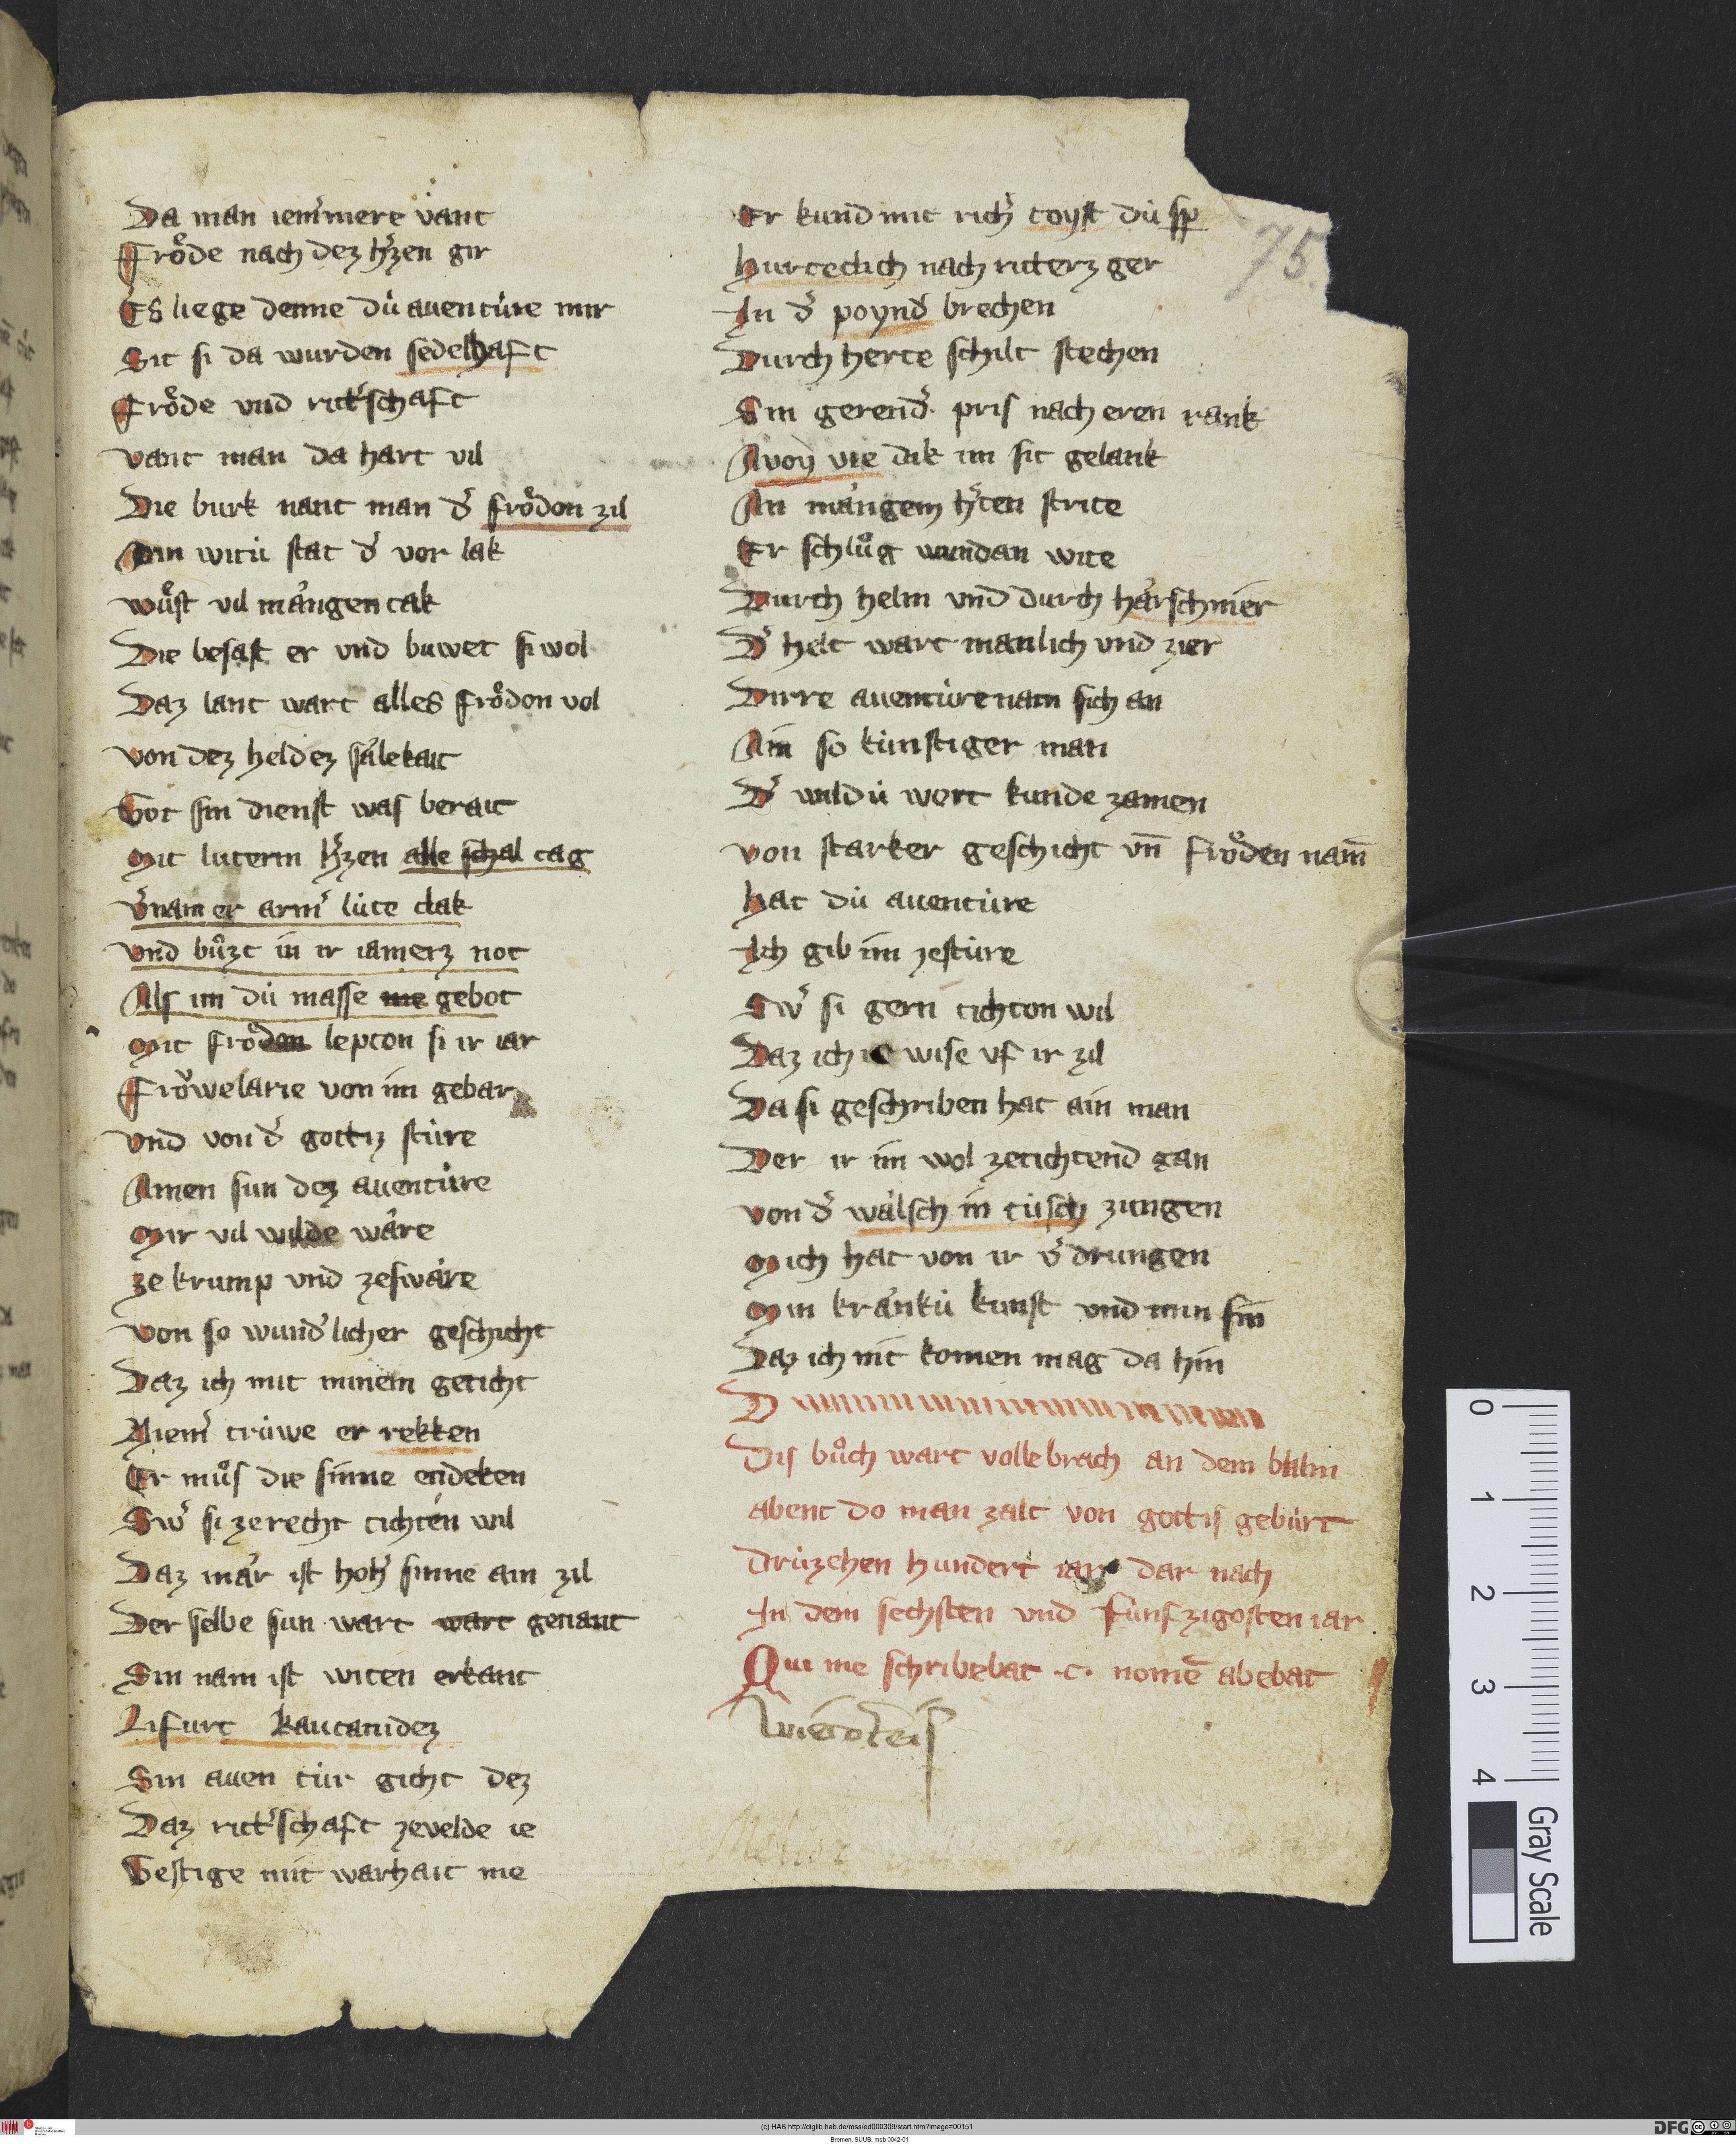 Da man iemˀmere vant
Froͤde nach dez hˀzen gir
Es liege denne dü auentüre mir
Sit si da wurden sedelhaft
Froͤde vnd rittˀschaft
vant man da hart vil
Die burk nant man dˀ froͤdon zil
Ain witü stat dˀ vor lak
wuͦst vil mangen tak
Die besast er vnd buwet si wol
Daz lant wart alles froͤdon vol
von dez heldez sälekait
Got sin dienst was berait
Mit luterm hˀzen alle schal tag
vˀnam er armˀ lüte clak
vnd buͦzt in ir iamerz not
Als im dü masse me gebot
Mit froͤdon lepton si ir iar
Froͤwelarie von im gebar
vnd von dˀ gottz stüre
Ainen sun dez auentüre
Mir vil wilde wäre
ze krump vnd zeswäre
von so wundˀlicher geschicht
Daz ich mit minem geticht
Niemˀ trüwe er rekken
Er muͦs die sinne endeken
Swˀ si zerecht tichten wil
Daz mär ist hohˀ sinne ain zil
Der selbe sun wart wart genant
Sin nam ist witen erkant
Lifurt kautanidez
Sin auen tür gicht dez
Daz rittˀschaft zevelde ie
Gestige mit warhait nie
Er kund mit richˀ toyst dü sp
hurteclich nach ritterz ger
In dˀ poyndˀ brechen
Durch herte schilt stechen
Sin gerendˀ pris nach eren rank
Avoy wie dik im sit gelank
An mangem hˀten strite
Er schluͦg wundan wite
Durch helm vnd durch härschnier
Dˀ helt wart manlich vnd zier
Dirre auentüre nam sich an
Ain so künstiger man
Dˀ wildü wort kunde zamen
von starker geschicht vn̄ froͤden nam̄
hat dü auentüre
Ich gib im zestüre
Swˀ si gern tichton wil
Daz ich wise vf ir zil
Da si geschriben hat ain man
Der ir im wol zetichtend gan
von dˀ wälsch in tüsch zungen
Mich hat von ir vˀdrungen
Min kränkü kunst vnd min sin
Daz ich nit komen mag da hin
Dis buͦch wart volle brach an dem balm
abent do man zalt von gottis gebürt
drüzehen hundert iar dar nach
In dem sechsten vnd fünfzigosten iar
Qui me schribebat .c. nomē abebat
75
0
1
2
3
4
Gray Scale
(c) HAB http://diglib.hab.de/mss/ed000309/start.htm?image=00151
DFG
Bremen, SUUB, msb 0042-01